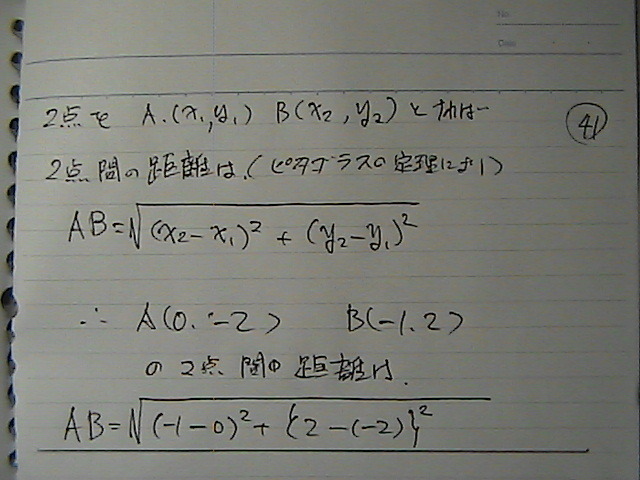 No.
Date
2点を A.(x₁,y₁) B(x₂,y₂)とすれば
41
2点間の距離は、(ピタゴラスの定理により)
AB=√(x₂-x₁)²+(y₂-y₁)²
∴ A(0.-2) B(-1.2)
の2点間の距離は.
AB=√(-1-0)²+{2-(-2)}²